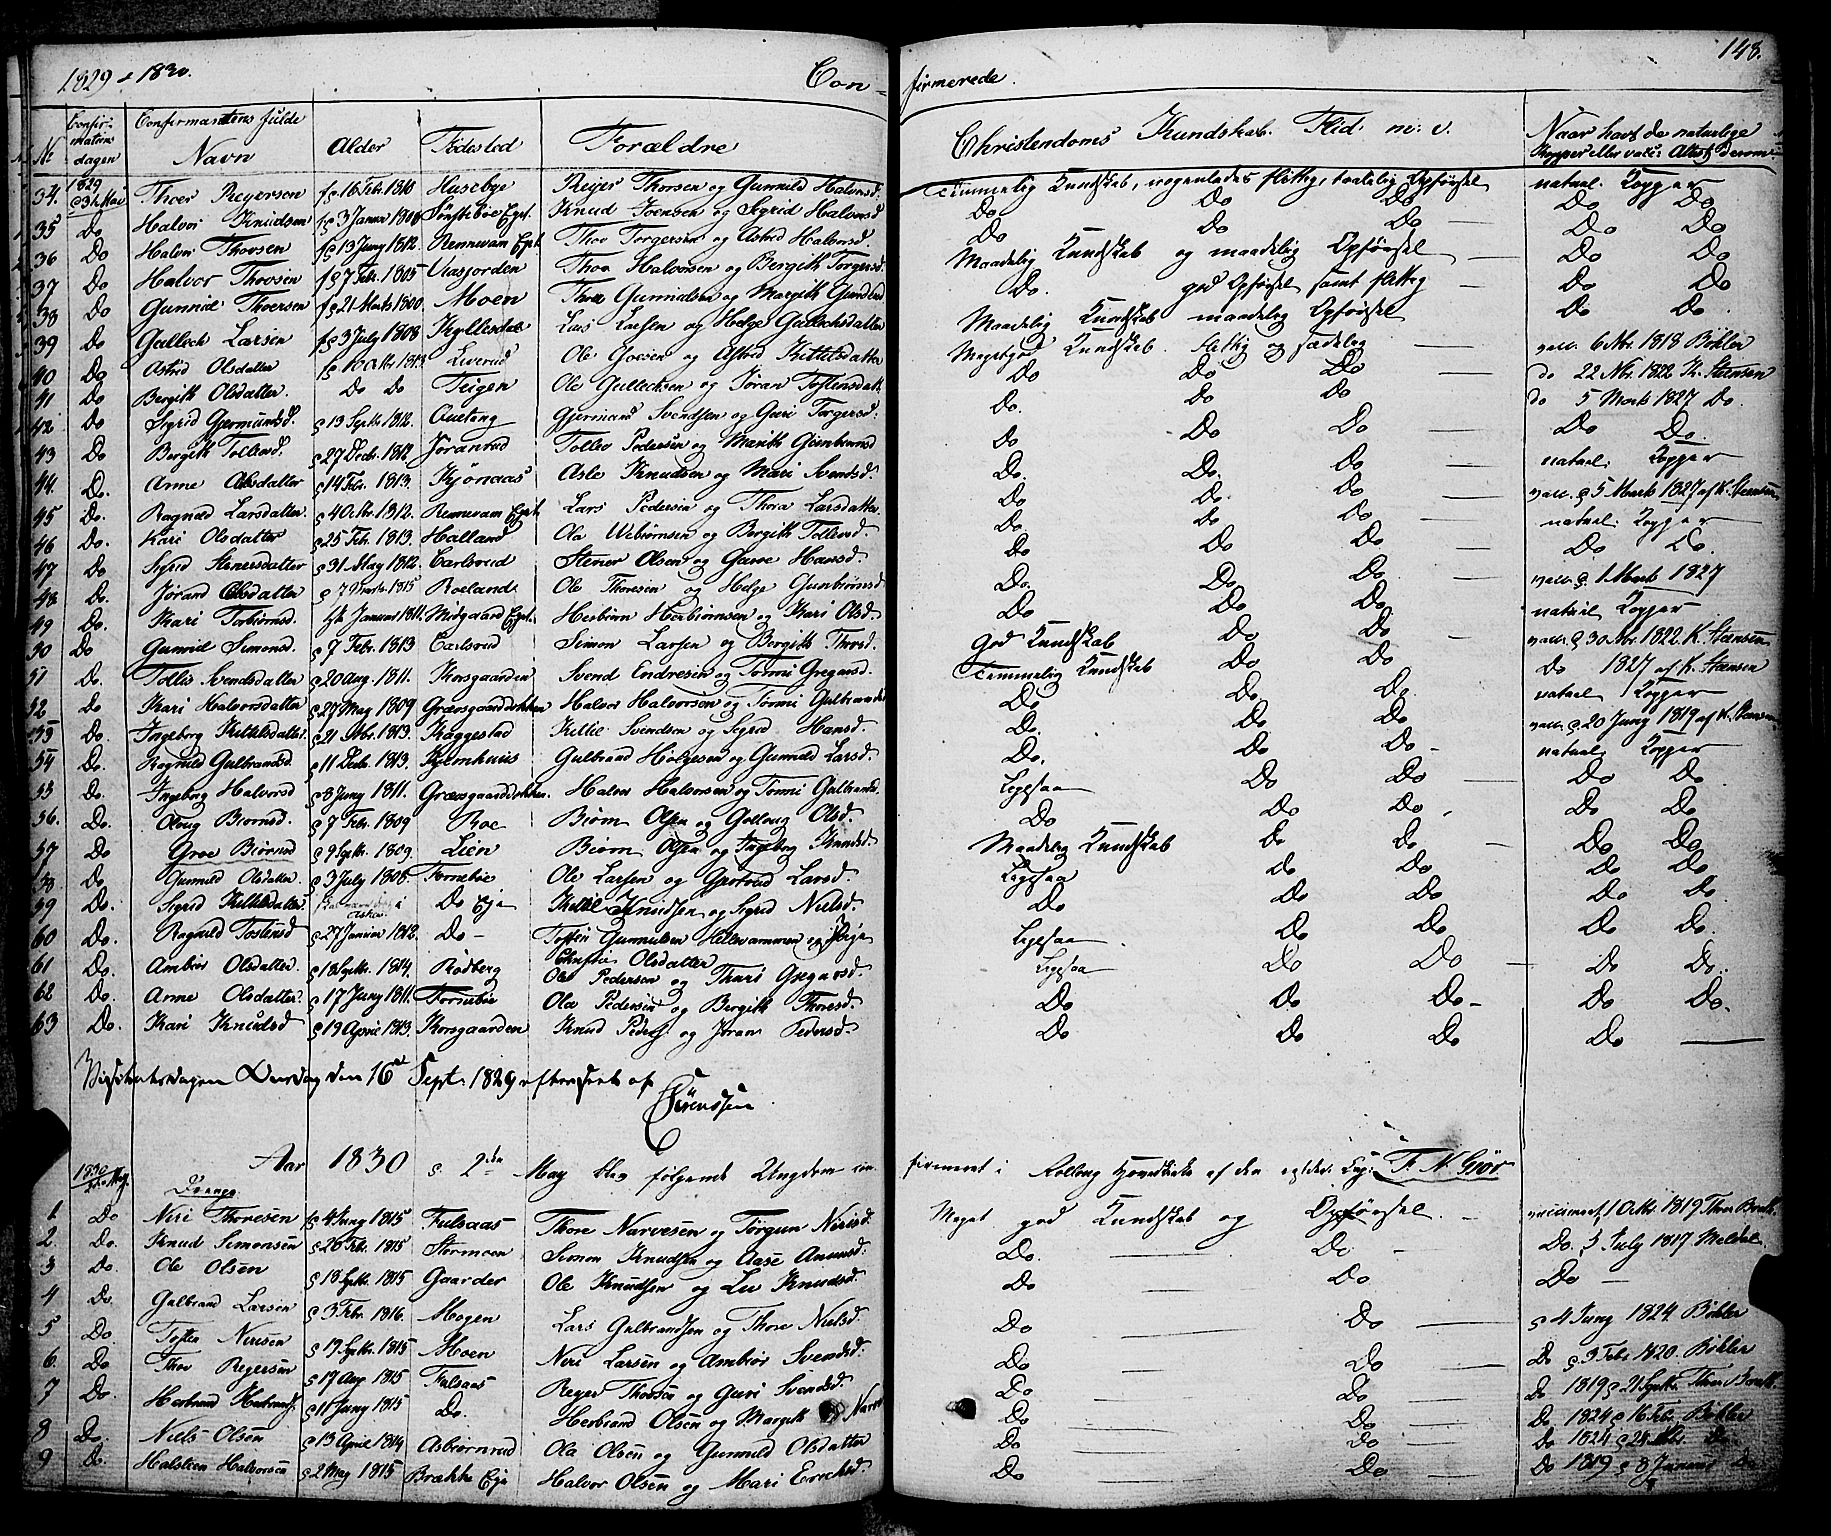 1829 & 1830. Con- firmerede. 148.
No Confirmationsdagen Confirmantens fulde Navn Alder Fødested Forældre Christendoms Kundskab. Flid. m: v. Naar havt de naturlige Kopper eller vacc: Attest derom
34. 1829 Thoer Reyersen f. 16 Febr. 1810 Husebye Reijer Thorsen og Gunnild Halvorsd. Temmelig Kundskab, nogenledes flittig, taalelig Opførsel naturl. Kopper
35 Do Halvor Knudsen f. 3 Januar 1808 Sønstebøe Knud Joensen og Sigrid Halvorsd Do Do Do Do Do
36 Do Halvor Thorsen f. 13 Juny 1812. Rennevam Eyet. Thov Torgersen og Astrid Halvorsd. Do Do Do Do Do
37 Do Halvor Thovsen f. 7 Febr. 1805 Uvasjorden Thov Halvorsen og Bergith Torgersd. Maadelig Kundskab og maadelig Opførsel Do Do
38 Do Gunnid Thoersen f. 21 Marts 1800. Moen Thoer Gunnidsen og Margith Do. god Opførsel samt flittig Do Do
39 Do Gullech Larsen f. 3 July 1808 Kyllesdal Lars Larsen og Helge Gullechsdatter Maadelig Kundskab maadelig Opførsel Do Do.
40 Do Astrid Olsdatter f. 10 Octbr 1813. Liverud Ole Goesen og Astrid Kittilsdatter Megetgod Kundskab. flittig og sædelig vacc. 6 Nbr. 1818 Bøhler
41 Do Bergith Olsdatter. Do Do Teigen Ole Gullechsen og Jøran Tostensdatt. Do Do Do do 22 Nbr. 1822 K. Steensen
42. Do Sigrid Gjermundsd. f. 13 Septbr. 1812. Gjermund Svendsen og Guri Torgersd. Do. Do Do do 5 Marts 1827 Do.
43 Do Bergith Tollevsd. f. 27 Decbr. 1812. Jøranrud Tollev Pedersen og Marith Do Do Do Do Do
44. Do. Anne Asledatter f. 14 Febr. 1813. Kjønaas Asle Knudsen og Mari Svendsd. Do. Do. Do naturl. Kopper
45 Do. Ragnild Larsdatter. f. 4 Octbr. 1812. Rennevam Eyet. Lars Pedersen og Thora Larsdatter. Do Do. Do vacc. f. 5 Marts 1827 af K. Steensen
46 Do. Kari Olsdatter f. 25 Febr. 1813. Halland Ola Webiørnsen og Bergith Tollevsd. Do. Do Do naturl. Kopper
47 Do Sigrid Stenersdatter f. 31 May 1812. Carlsrud Stener Olsen og Groe Hansd. Do Do Do Do Do.
48 Do. Jørand Olsdatter f. 7 Marts 1815 Roeland Ole Thoresen og Helge Gunbiørnsd. Do. Do Do vacc. f. 1 Marts 1827
49 Do. Kari Torbiørnsd. Januar 1811. Midgaard Eyet. Herbiørn Herbiørnsen og Kari Olsd. Do Do Do. naturl Kopper
50 Do Gunnild Simonsd. f. 7 Febr. 1813 Carlsrud Simon Larsen og Bergith Thorsd. God Kundskab Do Do vacc. f. 30 Nbr. 1822. K. Steensen
51 Do. Tollis Svendsdatter f. 20 Aug. 1811. Korsgaarden Svend Endresen og Tonni Gregarsd. Temmelig Kundskab Do Do Do 1827 af K. Steensen
52 Do Kari Halvorsdatter f. 27 May 1809 Græsgaardsokken Halvor Halvorsen og Tonni Gulbrandsd Do Do Do. naturl Kopper
53 Do. Ingeborg Kittilsdatter. f. 21 Nbr. 1813. Kaggestad Kittil Svendsen og Sigrid Hansd. Do. Do Do vacc. f. 20 Juny 1819 af K. Steensen
54 Do. Ragnild Gulbrandsd. f. 11 Decbr. 1813. Kjemhuus Gulbrand Holgesen og Gunnild Larsd. Do. Do Do naturl. Kopper
55 Do. Ingeborg Halvorsd f. 8 Juny 1811. Græsgaardsokken. Halvor Halvorsen og Tonni Gulbrands. Ligesaa Do Do Do Do
56. Do. Olaug Biørnsd. f. 7 Febr. 1809 Roe Biørn Olsen og Gollaug Olsd. Do Do Do. Do Do
57 Do Groe Biørnsd f. 9 Septbr. 1809. Lien Biørn Olsen og Ingeborg Knudsd. Maadelig Kundskab Do Do Do Do.
58 Do Gunnild Olsdatter. f. 3 July 1808. Fonnebøe Ole Larsen og Gjertrud Larsd. Ligesaa Do Do Do Do
59 Do. Sigrid Kittilsdatter. Do Eje Kittil Knudsen og Sigrid Nielsd. Do Do Do Do Do
60 Do. Ragnild Tostensd f. 27 Januar 1812. Do Tosten Gunnulsen Hellevammen og Christie Olsdatter Ligesaa. Do Do. Do Do.
61 Do. Ambiør Olsdatter. f. 18 Septbr. 1814. Rødberg Ole Pedersen og Thuri Gregarsd. Ligesaa Do Do Do Do.
62 Do. Anne Olsdatter. f. 17 Juny 1811. Fonnebøe Ola Pedersen og Bergith Thoresd. Do Do Do Do Do.
63 Do. Kari Knudsd f. 19 April 1813. Korsgaarden Knud Peders. og Jøran Pedersd. Do Do Do Do
Visitatsdagen Onsdag den 16de Sept. 1829 efterseet af
Sørenssen
Aar 1830 f. 2den May blev følgende Ungdom confirmeret i Rollaug Hovedkirke af den Cap: T. N. Giør
Drenge
1 Do Niri Thoresen f. 4 Juny 1815 Fulsaas Thore Narvesen og Torgun Nirisd. Meget god Kundskab og Opførsel. vaccineret 1 Octbr 1819 Thor Bratt.
2. Do. Knud Simonsen f. 26 Febr. 1815 Stormoen Simon Knudsen og Aase Amunsd. Do. Do Do. 3 July 1817 Meldal
3 Do. Ole Olsen f. 18 Septbr 1815 Gaarder Ole Knudsen og Liv Knudsd. Do Do Do
4 Do. Gulbrand Larsen f. 3 Febr. 1816. Mogen Lars Gulbrandsen og Thore Nielsd. Do Do f. 4 Juny 1824 Bøhler
5 Do. Tosten Nirisen f. 17 Septbr. 1815 Moen Niri Larsen og Ambiør Svendsd. Do Do Do f. 3 Febr 1820. Bøhler
6. Do Thov Regersen f. 17 Aug 1815 Fulsaas Reyer Thovsen og Guri Svendsd. Do Do Do 1819 f. 21 Septbr. Thor Bratt
7 Do. Herbrand Herbrands. f. 11 Juny 1815 Do. Herbrand Olsen og Margith Do Do Do 1824 f. 16 Febr. Bøhler
8 Do. Niels Olsen f. 13 April 1814 Asbiørnrud Ola Olsen og Gunnild Olsdatter Do Do Do 1824 f. 28 Do
9 Do. Halsteen Halvorsen f. 2 May 1815 Brække Eje Halvor Olsen og Mari Erichsd. Do Do Do 1819 f. 8 Januar Do